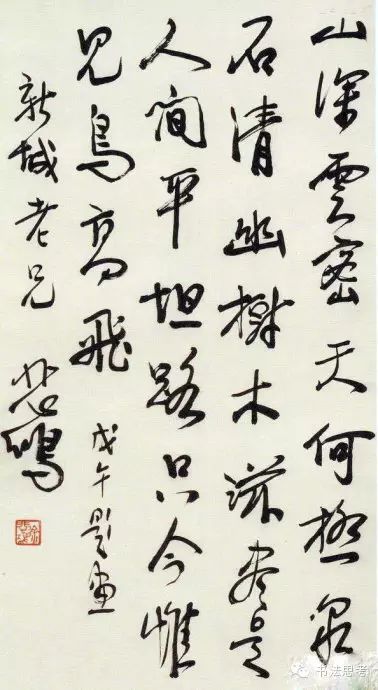 山深雲密天何極泉
石清幽樹木滋盡是
人間平坦路只今惟
見鳥高飛 戊午題畫
新城老兄
书法思考